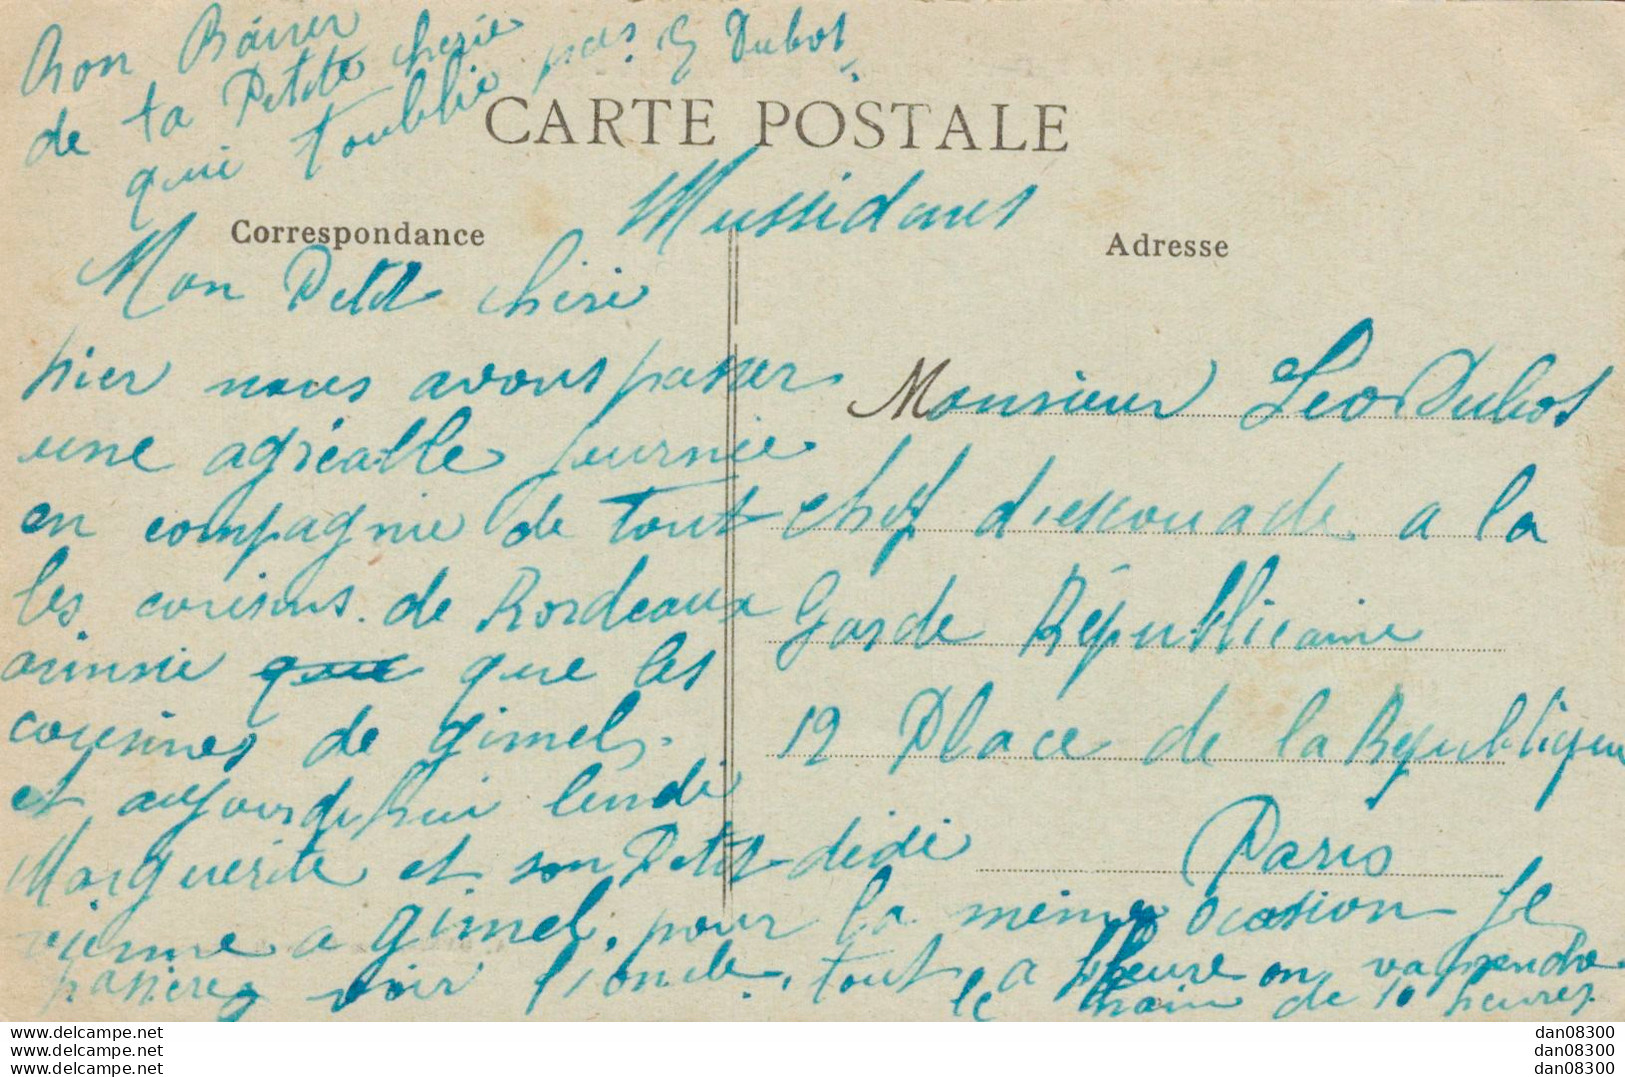 Bon Baiser
de ta Petite cherie
qui t'oublie pas. G Dubos
CARTE POSTALE
Correspondance
Adresse
Mussidans
Mon Petit cheri
hier nous avons passer
une agréable journie
en compagnie de tout
les cousins. de Bordeaux
ainsie que que les
cousines de gimel.
et aujourd'hui lundi
Marguerite et son Petit didi
vienne a gimel. pour la même ocasion Je
passerez voir l'oncle. tout a l'heure on va prendre
le train de 10 heures.
Monsieur Leo Dubos
chef d'escouade a la
Garde Républicaine
12 Place de la République
Paris
www.delcampe.net
www.delcampe.net
www.delcampe.net
dan08300
dan08300
dan08300